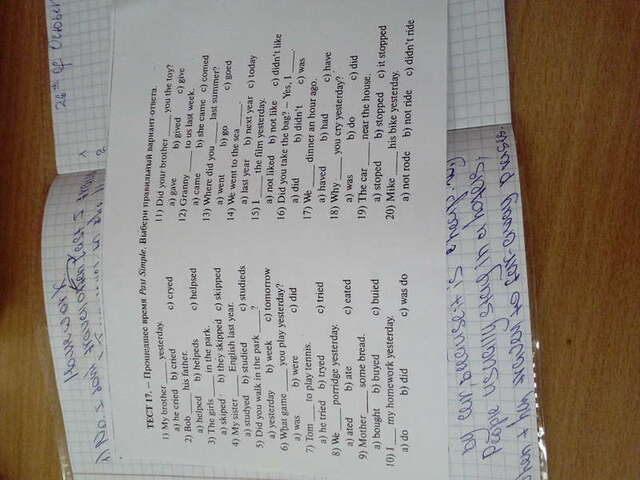 Homework
1) No. I don't travel often. Last I
26th of October
1
2
ТЕСТ 17. – Прошедшее время Past Simple. Выбери правильный вариант ответа.
1) My brother ____ yesterday.
a) he cried b) cried c) cryed
2) Bob ____ his father.
a) helped b) helpeds c) helpsed
3) The girls ____ in the park.
a) skiped b) they skipped c) skipped
4) My sister ____ English last year.
a) studyed b) studied c) studieds
5) Did you walk in the park ____?
a) yesterday b) week c) tomorrow
6) What game ____ you play yesterday?
a) was b) were c) did
7) Tom ____ to play tennis.
a) he tried b) tryed c) tried
8) We ____ porridge yesterday.
a) ated b) ate c) eated
9) Mother ____ some bread.
a) bought b) buyed c) buied
10) I ____ my homework yesterday.
a) do b) did c) was do
11) Did your brother ____ you the toy?
a) gave b) gived c) give
12) Granny ____ to us last week.
a) came b) she came c) comed
13) Where did you ____ last summer?
a) went b) go c) goed
14) We went to the sea ____.
a) last year b) next year c) today
15) I ____ the film yesterday.
a) not liked b) not like c) didn't like
16) Did you take the bag? – Yes, I ____.
a) did b) didn't c) was
17) We ____ dinner an hour ago.
a) haved b) had c) have
18) Why ____ you cry yesterday?
a) was b) do c) did
19) The car ____ near the house.
a) stoped b) stopped c) it stopped
20) Mike ____ his bike yesterday.
a) not rode b) not ride c) didn't ride
by car, because it is cheap.
People usually stay in a hotels,
when they travel to far-away plases.